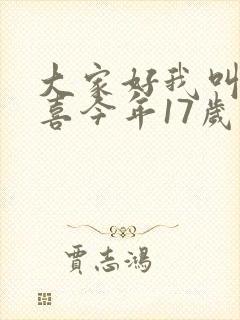 大家好我叫
喜今年17歲
贾志鴻